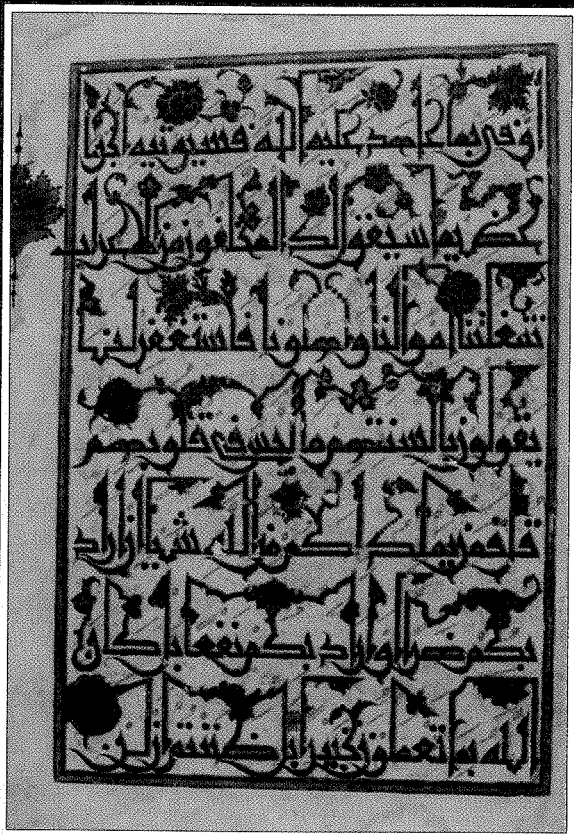 اوفى بما عاهد عليه الله فسيوتيه اجرا
عظيما سيقول لك المخلفون من الاعراب
شغلتنا اموالنا واهلونا فاستغفر لنا
يقولون بالسنتهم ما ليس في قلوبهم
قل فمن يملك لكم من الله شيئا ان اراد
بكم ضرا او اراد بكم نفعا بل كان
الله بما تعملون خبيرا بل ظننتم ان لن